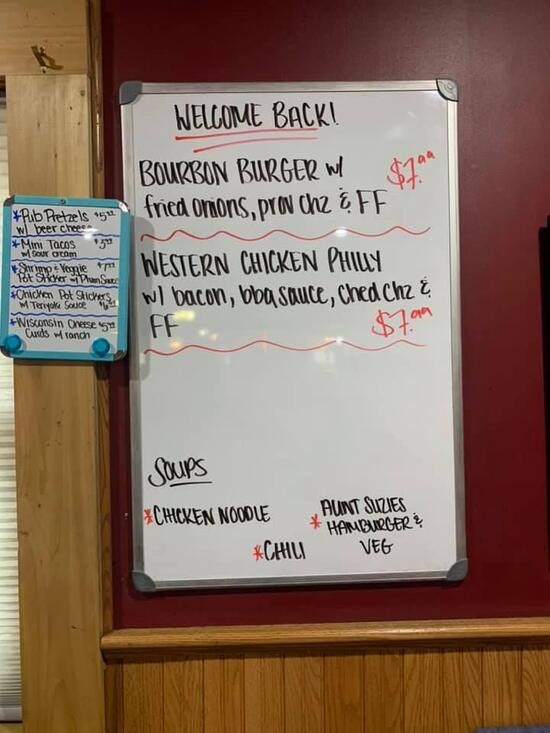 WELCOME BACK!
BOURBON BURGER w/
$7.99
fried onions, prov chz & FF
WESTERN CHICKEN PHILLY
w/ bacon, bbq sauce, ched chz &
FF
$7.99
SOUPS
*CHICKEN NOODLE
*AUNT SUZIES
HAMBURGER &
VEG
*CHILI
*Pub Pretzels
w/ beer cheese
*Mini Tacos
w/ sour cream
*Shrimp & Veggie
Pot Sticker w/ Plum Sauce
*Chicken Pot Stickers
w/ Teriyaki Sauce
*Wisconsin Cheese
Curds w/ ranch